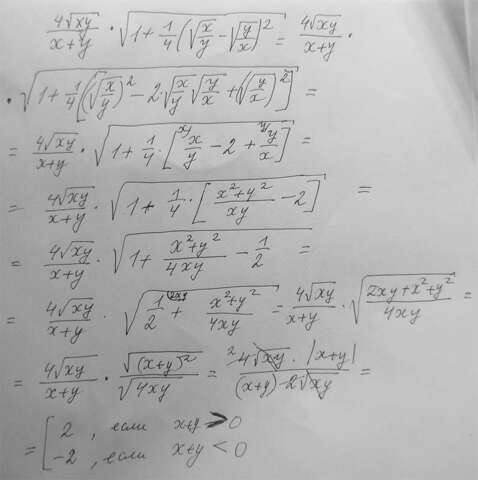 4√xy / x+y · √(1 + 1/4 (√(x/y) − √(y/x))²) = 4√xy / x+y ·
· √(1 + 1/4 [(√(x/y))² − 2·√(x/y) √(y/x) + (√(y/x))²]) =
= 4√xy / x+y · √(1 + 1/4 · [x/y − 2 + y/x]) =
= 4√xy / x+y · √(1 + 1/4 · [(x²+y²)/xy − 2]) =
= 4√xy / x+y · √(1 + (x²+y²)/4xy − 1/2) =
= 4√xy / x+y · √(1/2 + (x²+y²)/4xy) = 4√xy / x+y · √((2xy+x²+y²)/4xy) =
= 4√xy / x+y · √(x+y)² / √4xy = 4√xy · |x+y| / (x+y) 2√xy =
= [ 2, если x+y > 0
−2, если x+y < 0